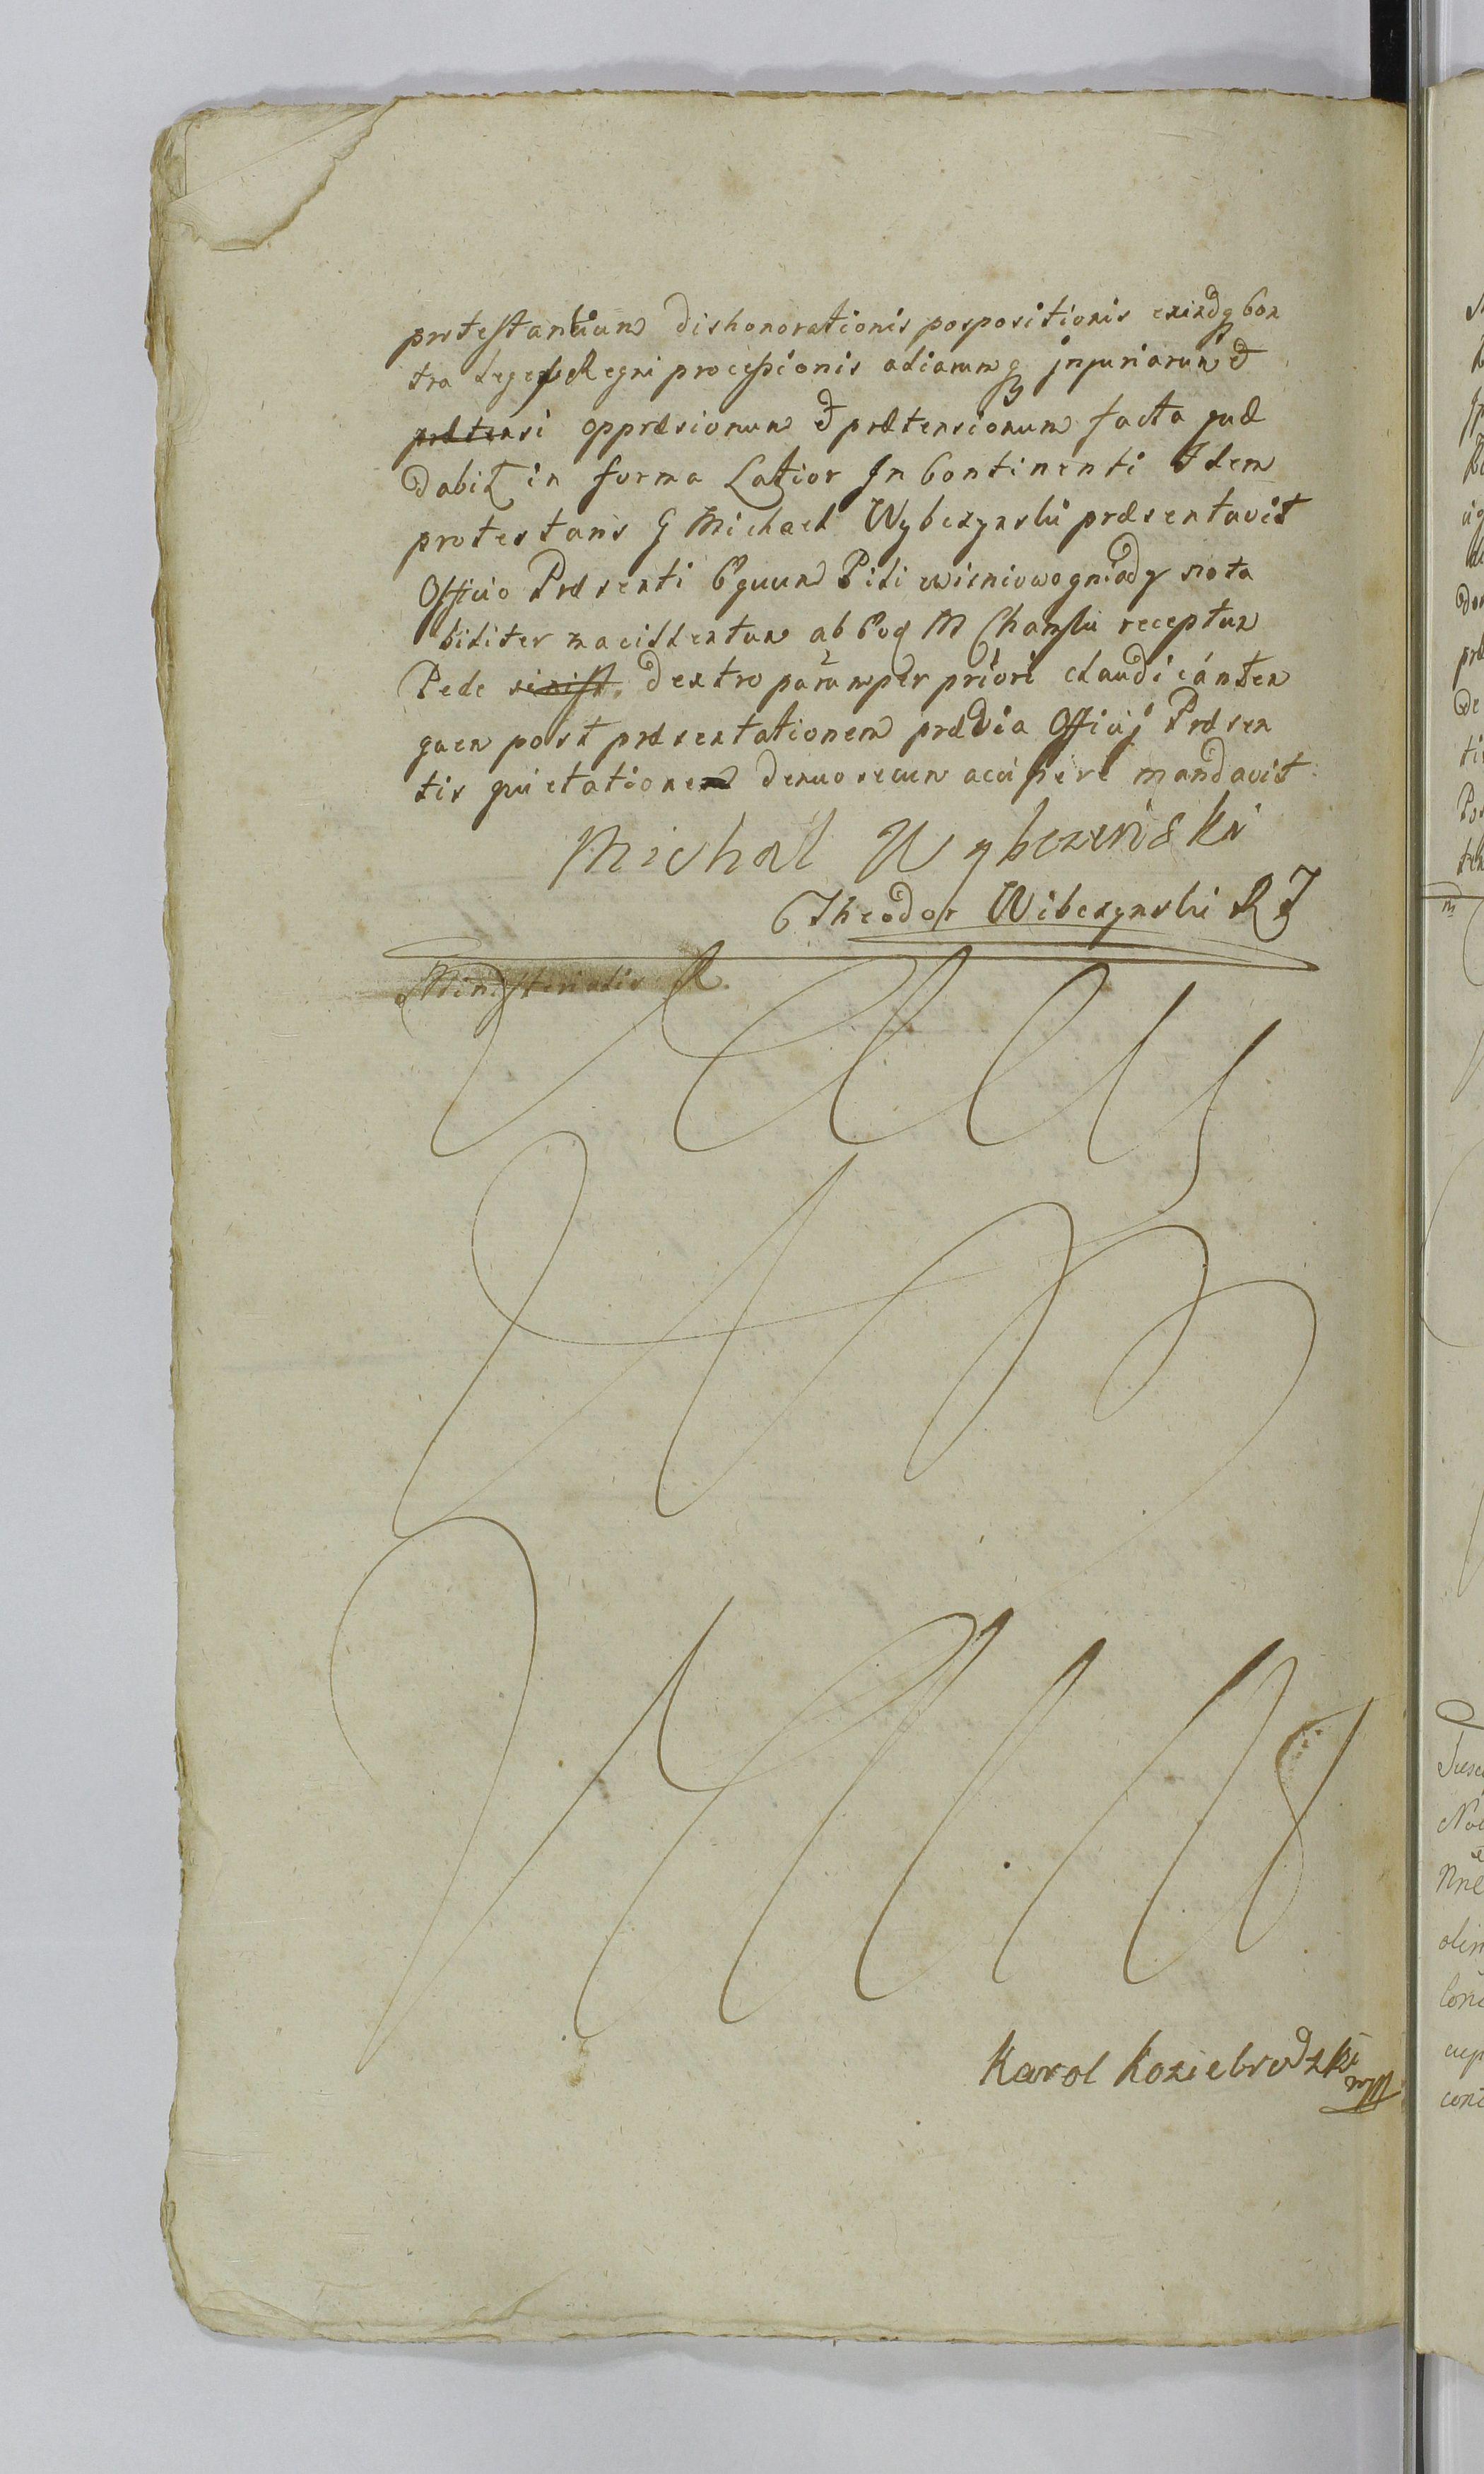 protestantium dishonorationis pospositionis exindq Con
tra Leges Regni processionis aliarumq injuriarum et
prætensi oppræsionum et prætensionum facta quæ
dabit in forma Latior In Continenti Idem
protestans G Michael Wybczynski præsentavit
Officio Præsenti Equum Pili wisniowogniady nota
biliter macillentum ab Eod M Chanski receptum
Pede sinist. dextro parumper priori claudicantem
quem post præsentationem prævia Officij Præsen
tis quietatione denuo secum accipere mandavit
Michal Wybczenski
Theodor Wibczynski R J
Ministerialis R.
Karol Koziebrodzki
mp